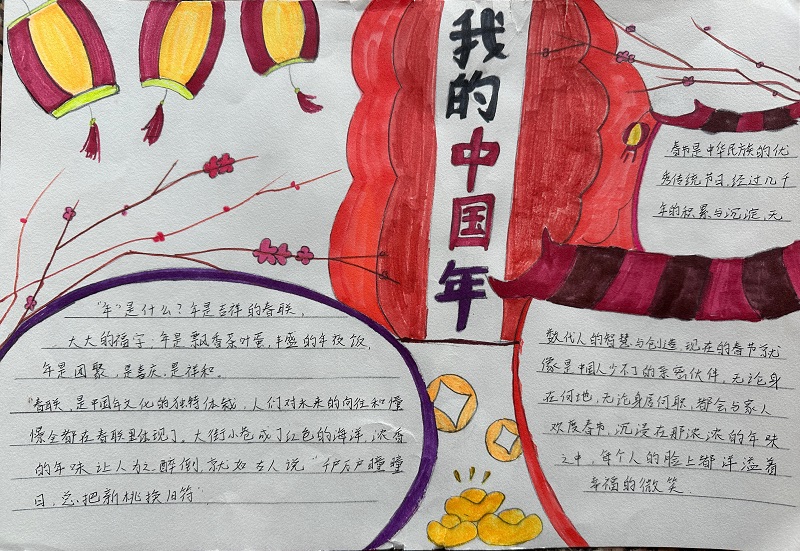 我的中国年
"年"是什么？年是吉祥的春联，
大大的福字，年是飘香茶叶蛋，丰盛的年夜饭，
年是团聚，是喜庆，是祥和。
"春联，是中国年文化的独特体裁，人们对未来的向往和憧
憬全都在春联里体现了。大街小巷成了红色的海洋，浓香
的年味让人为之醉倒，就如古人说"千户万户瞳瞳
日，总把新桃换旧符"
春节是中华民族的优
秀传统节日，经过几千
年的积累与沉淀，无
数代人的智慧与创造，现在的春节就
像是中国人少不了的亲密伙伴，无论身
在何地，无论身居何职，都会与家人
欢度春节，沉浸在那浓浓的年味
之中，每个人的脸上都洋溢着
幸福的微笑。